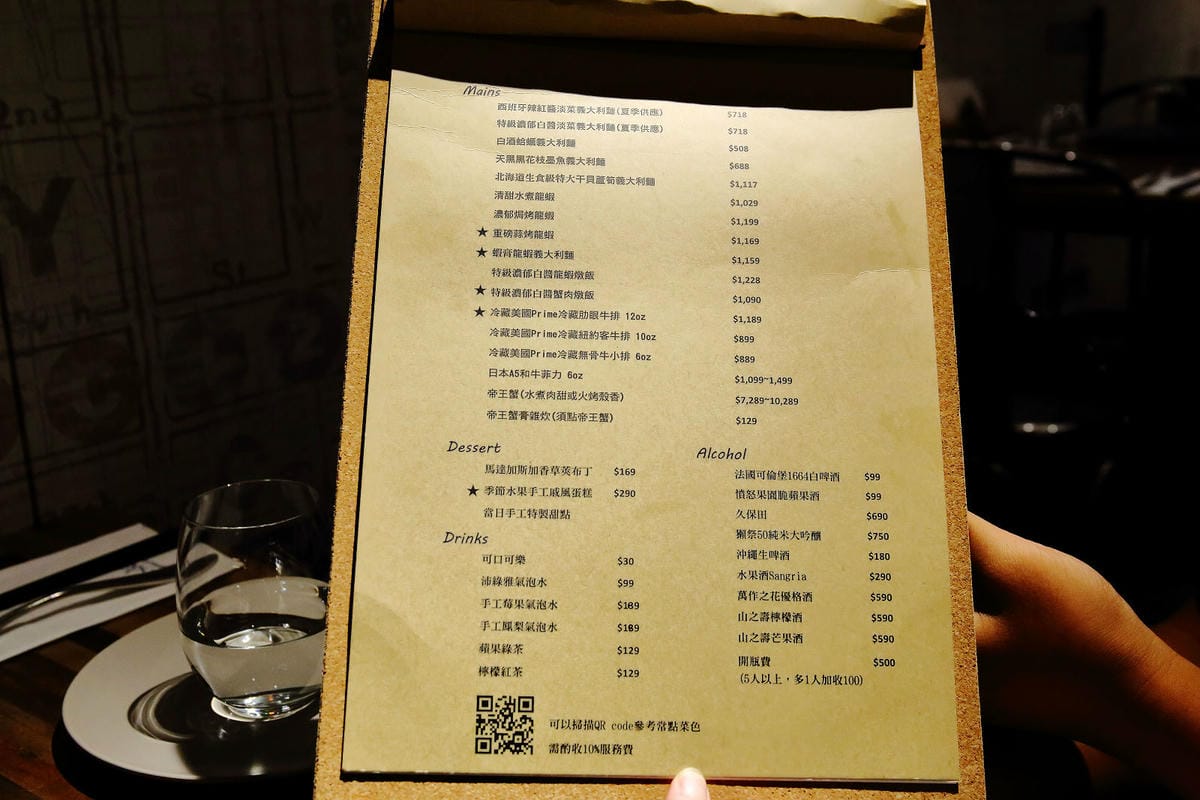 Mains
西班牙辣紅醬淡菜義大利麵(夏季供應) $718
特級濃郁白醬淡菜義大利麵(夏季供應) $718
白酒蛤蠣義大利麵 $508
天黑黑花枝墨魚義大利麵 $688
北海道生食級特大干貝蘆筍義大利麵 $1,117
清甜水煮龍蝦 $1,029
濃郁焗烤龍蝦 $1,199
★ 重磅蒜烤龍蝦 $1,169
★ 蝦膏龍蝦義大利麵 $1,159
特級濃郁白醬龍蝦燉飯 $1,228
★ 特級濃郁白醬蟹肉燉飯 $1,090
★ 冷藏美國Prime冷藏肋眼牛排 12oz $1,189
冷藏美國Prime冷藏紐約客牛排 10oz $899
冷藏美國Prime冷藏無骨牛小排 6oz $889
日本A5和牛菲力 6oz $1,099~1,499
帝王蟹(水煮肉甜或火烤殼香) $7,289~10,289
帝王蟹膏雜炊(須點帝王蟹) $129
Dessert
馬達加斯加香草莢布丁 $169
★ 季節水果手工戚風蛋糕 $290
當日手工特製甜點
Drinks
可口可樂 $30
沛綠雅氣泡水 $99
手工莓果氣泡水 $189
手工鳳梨氣泡水 $189
蘋果綠茶 $129
檸檬紅茶 $129
Alcohol
法國可倫堡1664白啤酒 $99
憤怒果園脆蘋果酒 $99
久保田 $690
獺祭50純米大吟釀 $750
沖繩生啤酒 $180
水果酒Sangria $290
萬作之花優格酒 $590
山之壽檸檬酒 $590
山之壽芒果酒 $590
開瓶費 $500
(5人以上，多1人加收100)
可以掃描QR code參考常點菜色
需酌收10%服務費
2nd
St
St
Y